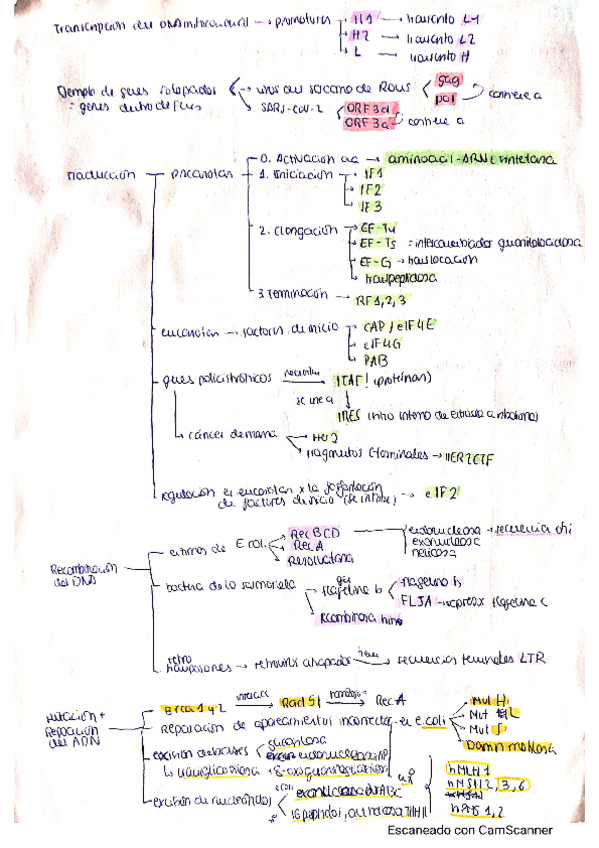 Transcripción del DNA mitocondrial → promotores → H1 → transcrito L1
H2 → transcrito L2
L → transcrito H
Ejemplo de genes solapados → virus del sarcoma de Rous gag
= genes dentro de genes pol conviene a
SARS-CoV-2 ORF 3d
ORF 3a conviene a
traducción procariotas 0. Activación aa → aminoacil-ARNt sintetasa
1. Iniciación → IF1
IF2
IF3
2. Elongación → EF-Tu
EF-Ts = intercambiador
EF-G → translocación
transpeptidasa
3 Terminación → RF1,2,3
eucariotas → factores de inicio CAP / eIF4E
eIF4G
PAB
genes policistrónicos necesitan ITAF! (proteínas)
se une a
IRES (sitio interno de entrada a ribosoma)
cáncer de mama → Her2
fragmentos C terminales → HER2CTF
regulación en eucariotas x la
de factores de inicio → eIF2
Recombinación
del DNA
enzimas de E coli RecBCD endonucleasa → secuencia chi
RecA exonucleasa
Resolvasa helicasa
bacteria de la salmonela → flagelina b flagelina b
FLJA → represor flagelina c
recombinasa hin
retro
transposones → retrovirus secuencias terminales LTR
Mutación +
Reparación
del ADN
Brca 1 y 2 interacc Rad 51 homólogo = RecA
reparación de apareamientos incorrectos en e.coli Mut H
Mut L
Mut S
Damn metilasa
escisión de bases glucosilasa
endonucleasa AP
uracil glicosilasa
hMLH 1
hMSH 2, 3, 6
hPMS 1, 2
escisión de nucleótidos e coli exonucleasa uvrABC
16 peptidos, TFIIH
Escaneado con CamScanner